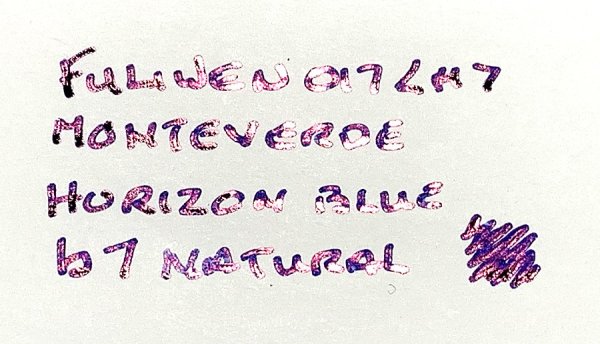 FULIWEN 017
MONTEVERDE
HORIZON BLUE
NATURAL